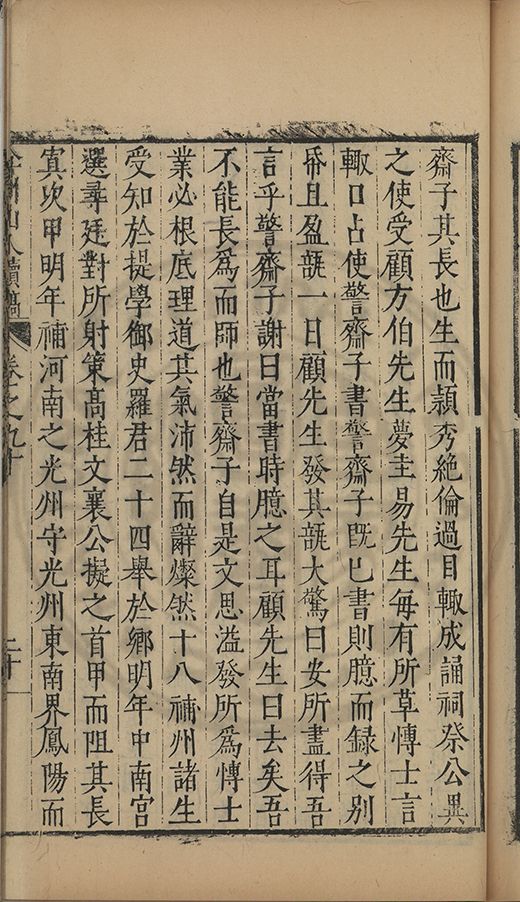 齋子其長也生而頴秀絕倫過目輙成誦祠祭公異
之使受顧方伯先生夢圭易先生毎有所草愽士言
輙口占使警齋子書警齋子旣巳書則臆而録之别
帋且盈瓿一日顧先生發其瓿大驚曰安所盡得吾
言乎警齋子謝曰當書時臆之耳顧先生曰去矣吾
不能長爲而師也警齋子自是文思溢發所爲愽士
業必根底理道其氣沛然而辭燦然十八補州諸生
受知於提學御史羅君二十四舉於鄉明年中南宮
選尋廷對所射策髙桂文襄公擬之首甲而阻其長
寘次甲明年補河南之光州守光州東南界鳳陽而
山人續稿 卷之九十